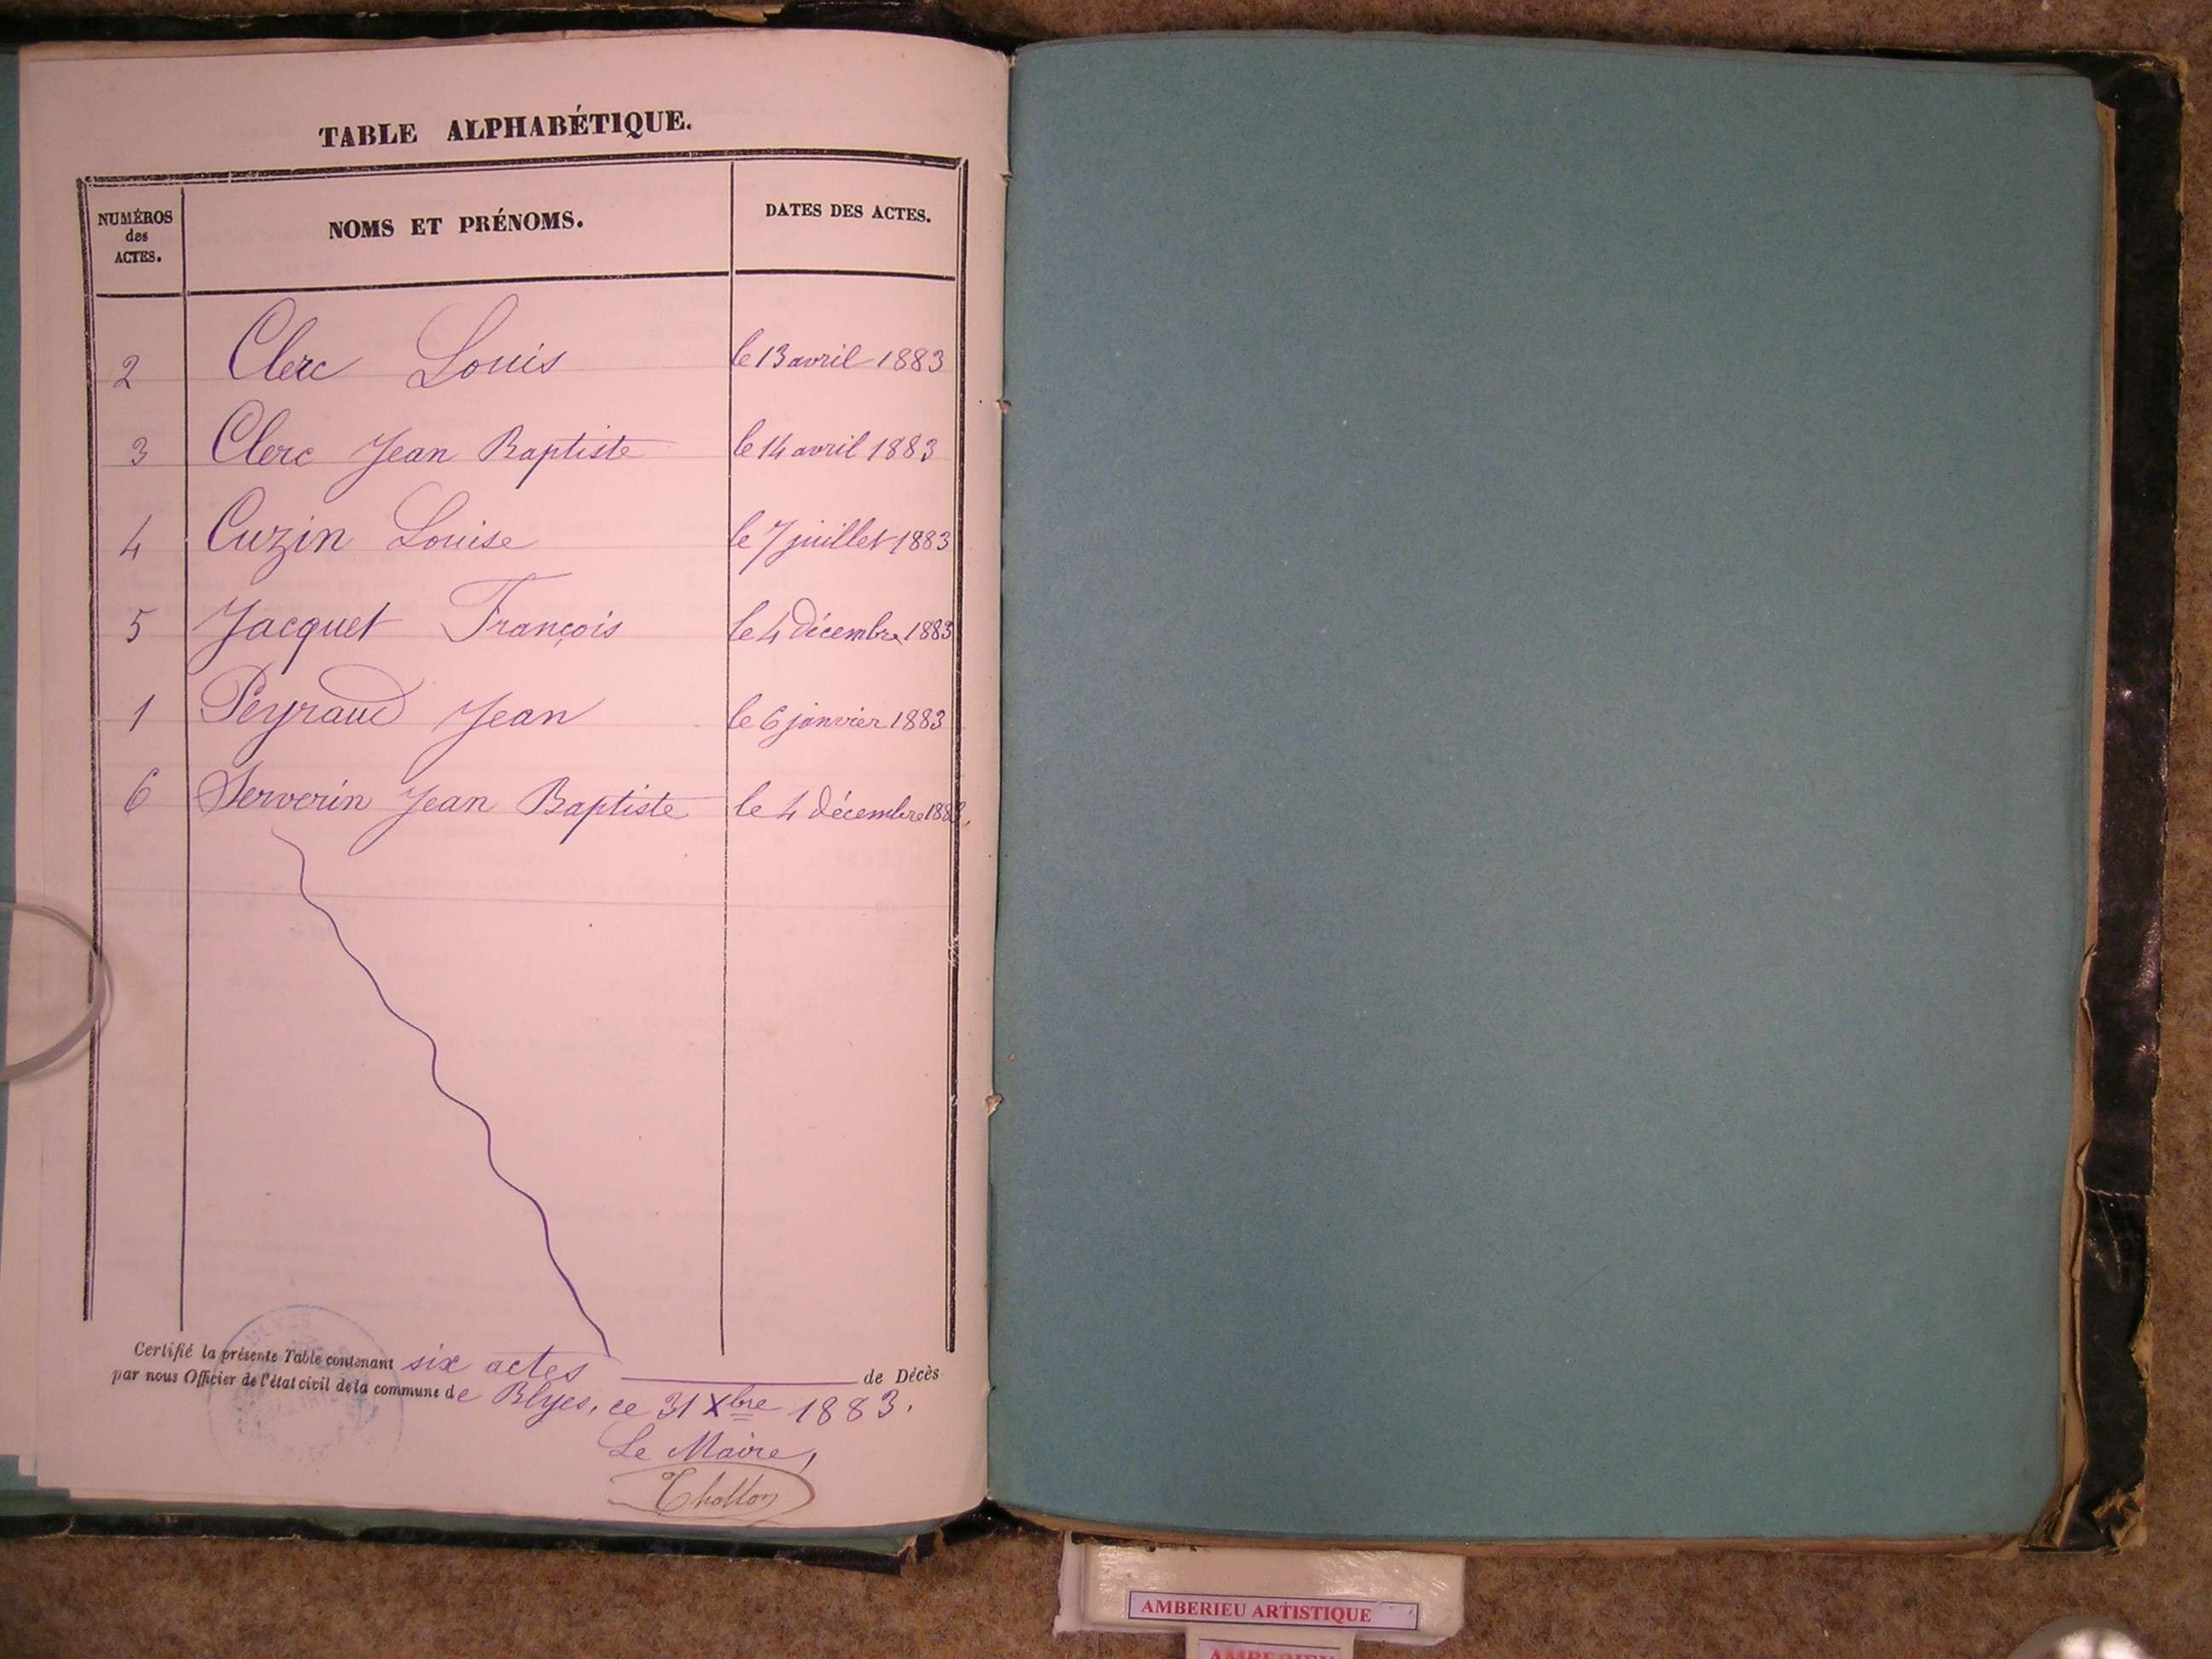 TABLE ALPHABÉTIQUE.
NUMÉROS des ACTES. NOMS ET PRÉNOMS. DATES DES ACTES.
2 Clerc Louis le 13 avril 1883
3 Clerc Jean Baptiste le 14 avril 1883
4 Cuzin Louise le 7 juillet 1883
5 Jacquet François le 4 décembre 1883
1 Peyraud Jean le 6 janvier 1883
6 Serverin Jean Baptiste le 4 décembre 1883.
Certifié la présente Table contenant six actes de Décès
par nous Officier de l'état civil de la commune de Blyes, ce 31 Xbre 1883.
Le Maire,
BLYES
AMBERIEU ARTISTIQUE
AMBERIEU